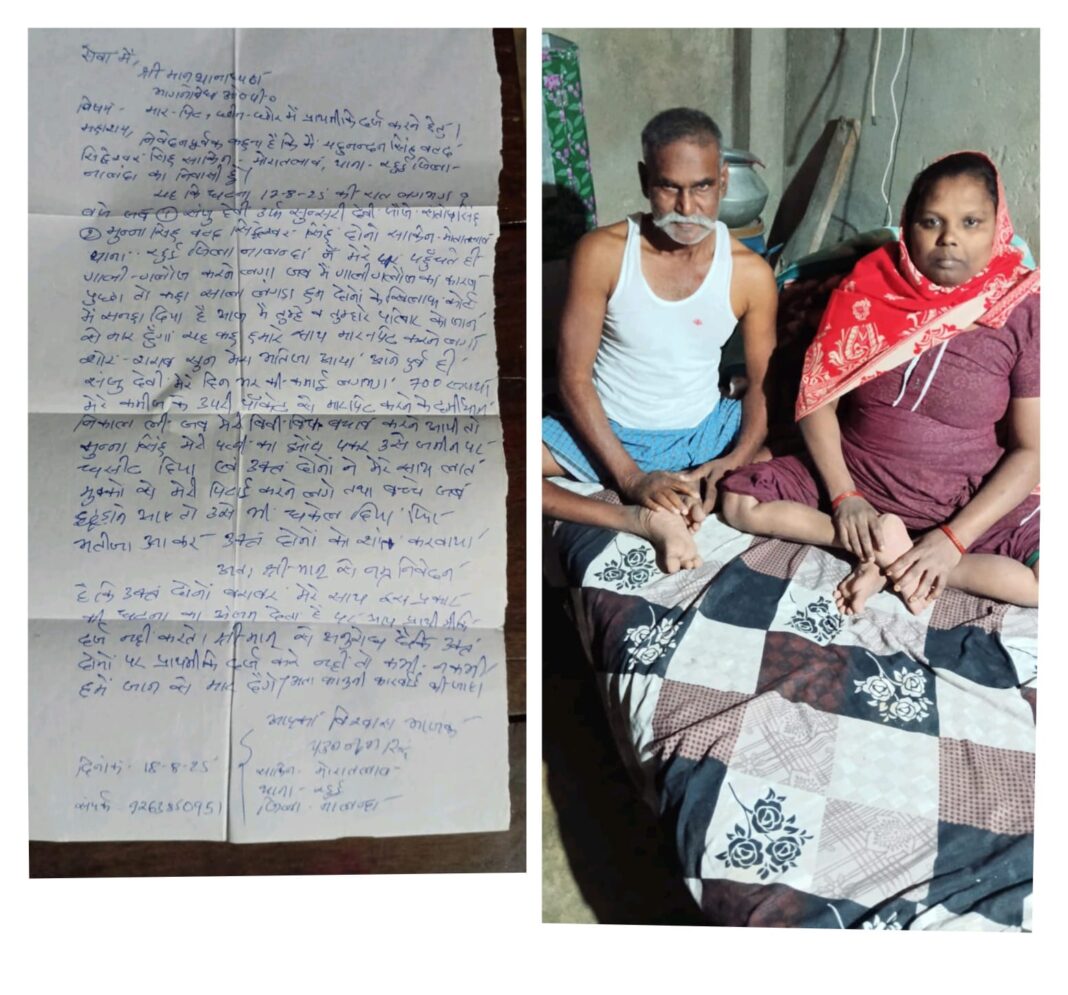 सेवा में,
श्री मान् थानाध्यक्ष
भागनबिघा ओ०पी०
विषय - मार-पिट, छीन-छोर में प्राथमीकि दर्ज करने हेतु।
महाशय, निवेदनपूर्वक कहना है कि मैं यदुनन्दन सिंह वल्द
सिद्देश्वर सिंह साकिन - मोरातलाव, थाना - रहुई जिला-
नालंदा का निवासी हुँ।
यह कि घटना 12-8-25 की रात लगभग 9
बजे जब ① संजु देवी उर्फ सुन्सरी देवी सिंह
② मुन्ना सिंह वल्द सिद्देश्वर सिंह दोनो साकिन-मोरातलाव
थाना - रहुई जिला नालन्दा ने मेरे घर पहुँचते ही
गाली-गलौज करने लगा जब मैं गाली गलौज का कारण
पुछा तो कहा साला लंगडा हम दोनों के खिलाफ कोर्ट
में सनहा दिया है आज मैं तुम्हे व तुम्हारे परिवार को जान
से मार दुँगा यह कह हमारे साथ मारपिट करने लगा
शोर-शराब सुन मेरा भतिजा आया आने पुर्व ही
संजु देवी मेरे दिन भर की कमाई लगभग 700 रूपया
मेरे कमीज के उपरी पॉकेट से मारपिट करने के दर्मीयान
निकाल ली जब मेरी विवी बिच बचाव करने आयी तो
मुन्ना सिंह मेरी पत्नी का झोंटा पकर उसे जमीन पर
घसीट दिया एवं उक्त दोनों ने मेरे साथ लात
मुक्को से मेरी पिटाई करने लगे तथा बच्चे जब
छुड़ाने आए तो उसे भी धकेल दिया फिर
भतीजा आकर उक्त दोनों को शांत करवाया
अतः श्री मान् से नम्र निवेदन
है कि उक्त दोनों बराबर मेरे साथ इस प्रकार
की घटना का अंजाम देता है पर आप प्राथमीकि
दर्ज नहीं करते। श्री मान् से अनुरोध है कि उक्त
दोनों पर प्राथमीकि दर्ज करे नहीं तो कभी न कभी
हमें जान से मार देंगे। अतः कानुनी कारवाई की जाए।
आपका विश्वास भाजक
यदुनन्दन सिंह
दिनांक - 18-8-25 साकिन - मोरातलाव
थाना - रहुई
संपर्क 9263850951 जिला - नालन्दा